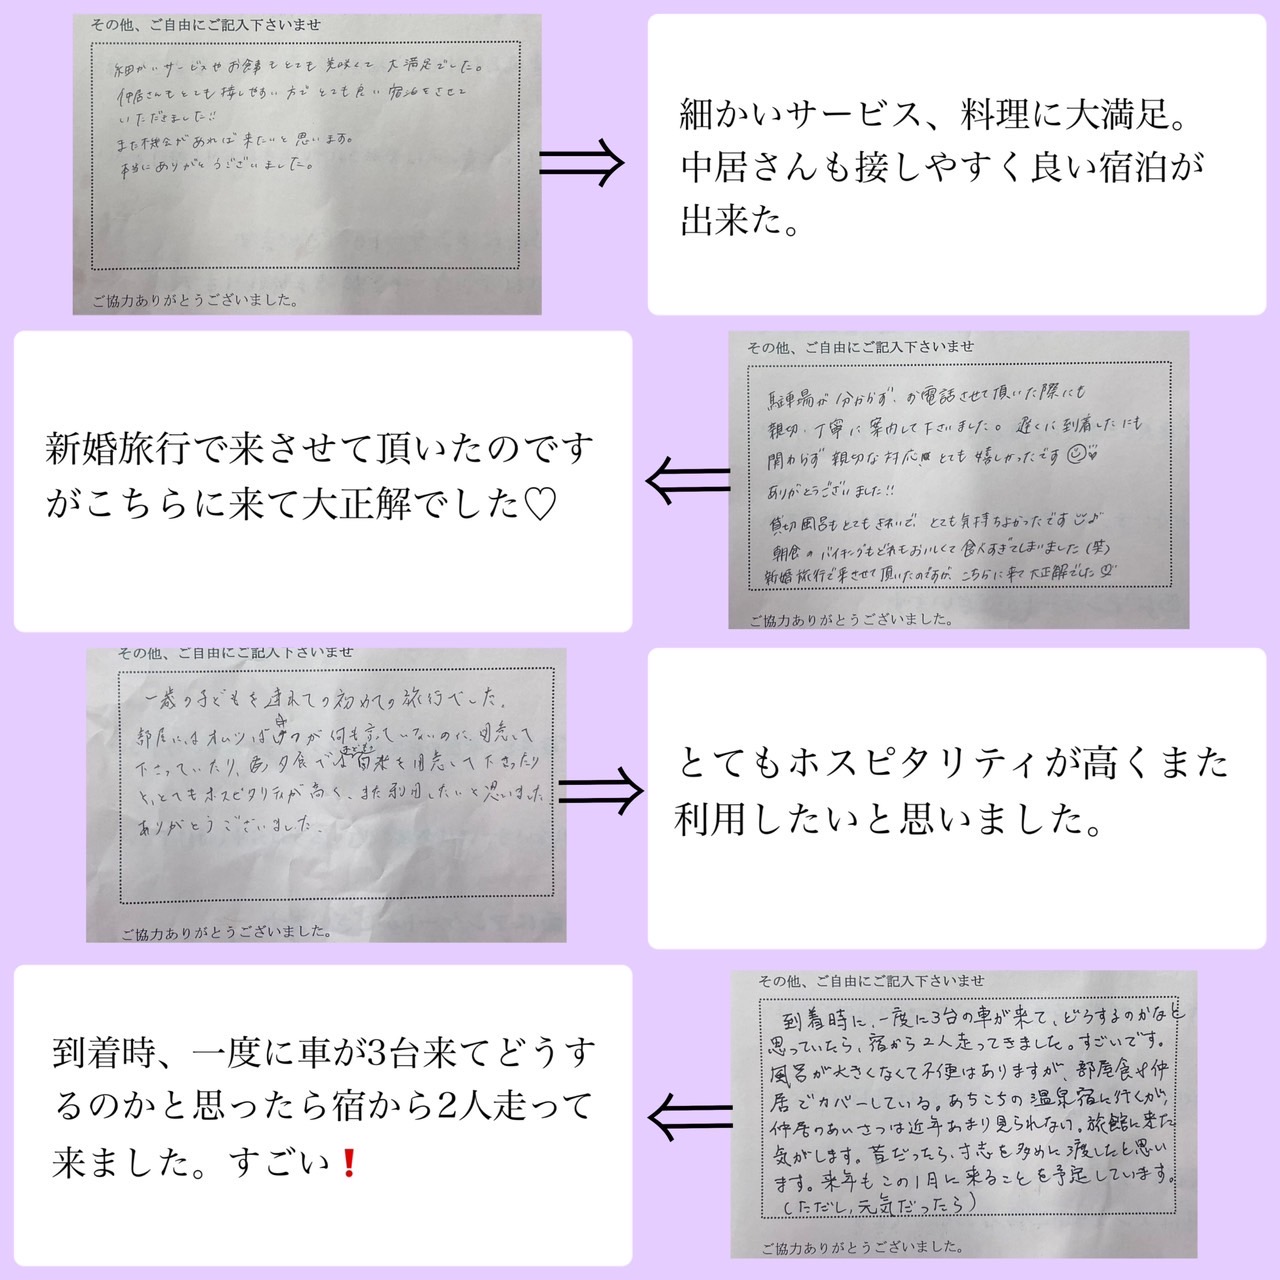 その他、ご自由にご記入下さいませ
細かいサービスやお食事もとても美味くて大満足でした。
仲居さんもとても接しやすい方でとても良い宿泊をさせて
いただきました!!
また機会があれば来たいと思います。
本当にありがとうございました。
ご協力ありがとうございました。
細かいサービス、料理に大満足。
中居さんも接しやすく良い宿泊が
出来た。
新婚旅行で来させて頂いたのです
がこちらに来て大正解でした♡
その他、ご自由にご記入下さいませ
駐車場が分からず、お電話させて頂いた際にも
親切・丁寧に案内して下さいました。遅くに到着したにも
関わらず親切な対応、とても嬉しかったです
ありがとうございました!!
貸切風呂もとてもきれいで、とても気持ちよかったです♪
朝食のバイキングもどれもおいしくて食べすぎてしまいました(笑)
新婚旅行で来させて頂いたのですが、こちらに来て大正解でした♡
ご協力ありがとうございました。
その他、ご自由にご記入下さいませ
一歳の子どもを連れての初めての旅行でした。
部屋にはオムツ
が何も言っていないのに、用意して
下さっていたり、夕食で
を用意して下さったり
と、とてもホスピタリティが高く、また利用したいと思いました
ありがとうございました。
ご協力ありがとうございました。
とてもホスピタリティが高くまた
利用したいと思いました。
到着時、一度に車が3台来てどうす
るのかと思ったら宿から2人走って
来ました。すごい❗
その他、ご自由にご記入下さいませ
到着時に、一度に3台の車が来て、どうするのかなと
思っていたら、宿から2人走ってきました。すごいです。
風呂が大きくなくて不便はありますが、部屋食や仲
居でカバーしている。あちこちの温泉宿に行くが、
仲居のあいさつは近年あまり見られない。旅館に来た
気がします。昔だったら、寸志を多めに渡したと思い
ます。来年もこの1月に来ることを予定しています。
(ただし、元気だったら)
ご協力ありがとうございました。